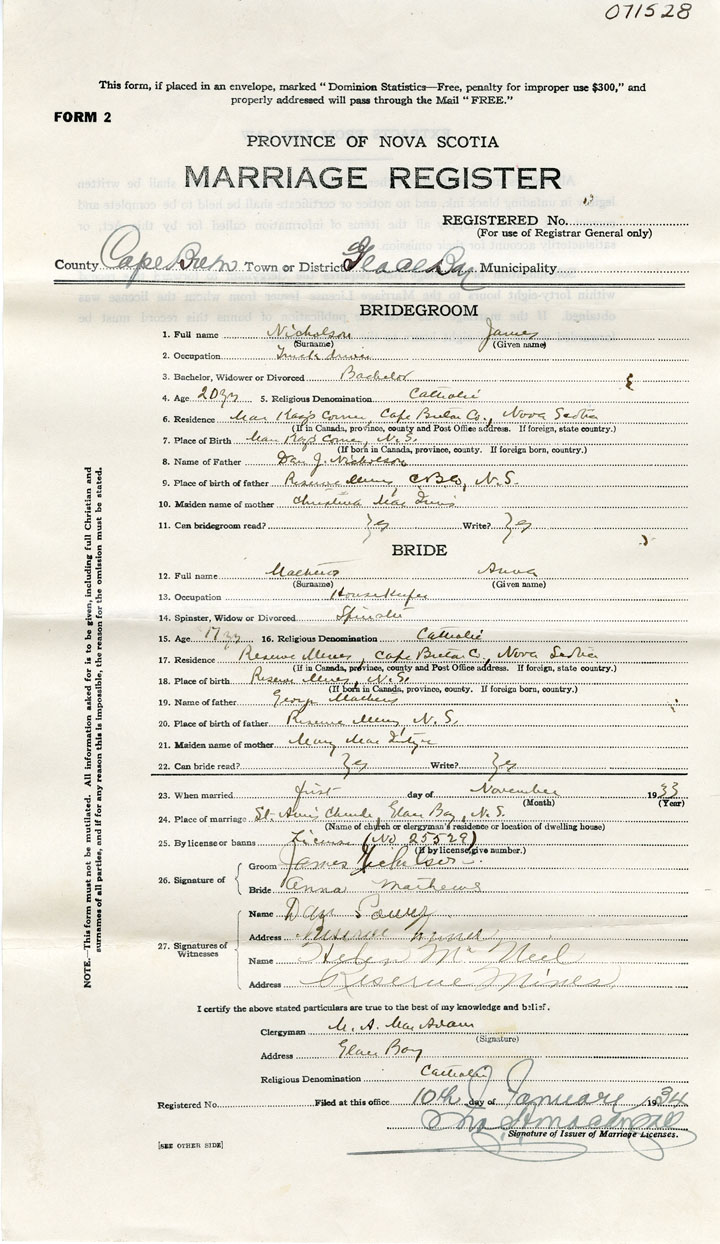 071528
This form, if placed in an envelope, marked "Dominion Statistics—Free, penalty for improper use $300," and
properly addressed will pass through the Mail "FREE."
FORM 2
PROVINCE OF NOVA SCOTIA
MARRIAGE REGISTER
REGISTERED No.
(For use of Registrar General only)
County Cape Breton Town or District Glace Bay Municipality
BRIDEGROOM
1. Full name Nicholson James
(Surname) (Given name)
2. Occupation Truck driver
3. Bachelor, Widower or Divorced Bachelor
4. Age 20 yrs 5. Religious Denomination Catholic
6. Residence Mac Kay's Corner, Cape Breton Co., Nova Scotia
(If in Canada, province, county and Post Office address. If foreign, state country.)
7. Place of Birth Mac Kay's Corner, N.S.
(If born in Canada, province, county. If foreign born, country.)
8. Name of Father Dan J. Nicholson
9. Place of birth of father Reserve Mines, C.B.Co, N.S.
10. Maiden name of mother Christina Mac
11. Can bridegroom read? Yes Write? Yes
BRIDE
12. Full name Mathews Anna
(Surname) (Given name)
13. Occupation Housekeeper
14. Spinster, Widow or Divorced Spinster
15. Age 17 yrs 16. Religious Denomination Catholic
17. Residence Reserve Mines, Cape Breton C, Nova Scotia
(If in Canada, province, county and Post Office address. If foreign, state country.)
18. Place of birth Reserve Mines, N.S.
(If born in Canada, province, county. If foreign born, country.)
19. Name of father George Mathews
20. Place of birth of father Reserve Mines N.S.
21. Maiden name of mother Mary Mac Intyre
22. Can bride read? Yes Write? Yes
23. When married first day of November 1933
(Month) (Year)
24. Place of marriage St. Ann's Church, Glace Bay, N.S.
(Name of church or clergyman's residence or location of dwelling house)
25. By license or banns License (No 25529)
(If by license give number.)
26. Signature of
Groom James Nicholson
Bride Anna Mathews
27. Signatures of Witnesses
Name Dan
Address Reserve Mines
Name Helen McNeil
Address Reserve Mines
I certify the above stated particulars are true to the best of my knowledge and belief.
Clergyman M. A. MacAdam
(Signature)
Address Glace Bay
Religious Denomination Catholic
Registered No. Filed at this office 10th day of January 1934
Signature of Issuer of Marriage Licenses.
[SEE OTHER SIDE]
NOTE.—This form must not be mutilated. All information asked for is to be given, including full Christian and
surnames of all parties, and if for any reason this is impossible, the reason for the omission must be stated.